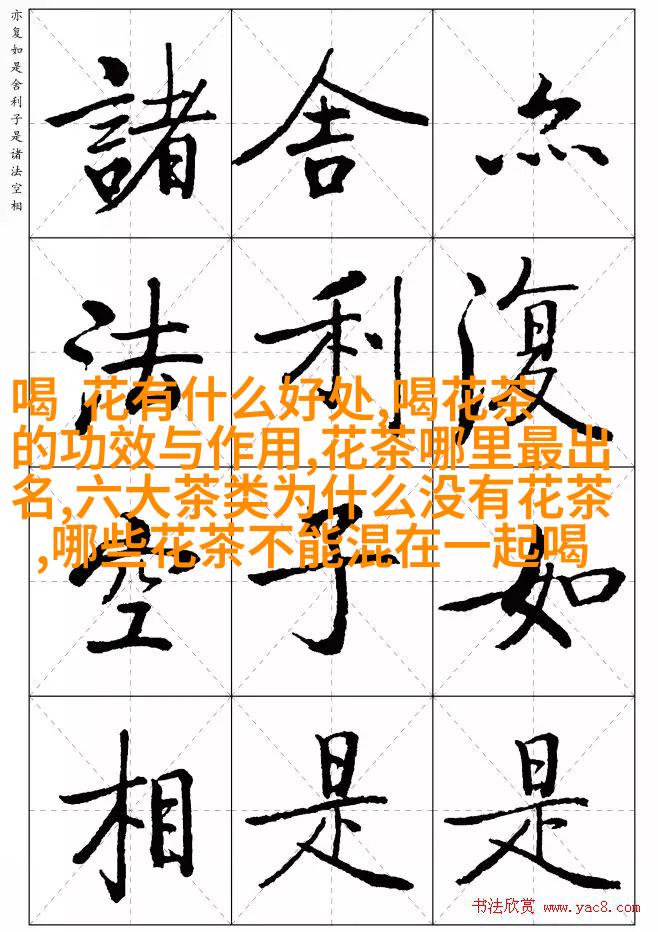 亦复如是舍利子是诸法空相
亦復如是
舍利子是
諸法空相
喝 花有什么好处,喝花茶
的功效与作用,花茶哪里最出
名,六大茶类为什么没有花茶
,哪些花茶不能混在一起喝
书法欣赏 www.yac8.com